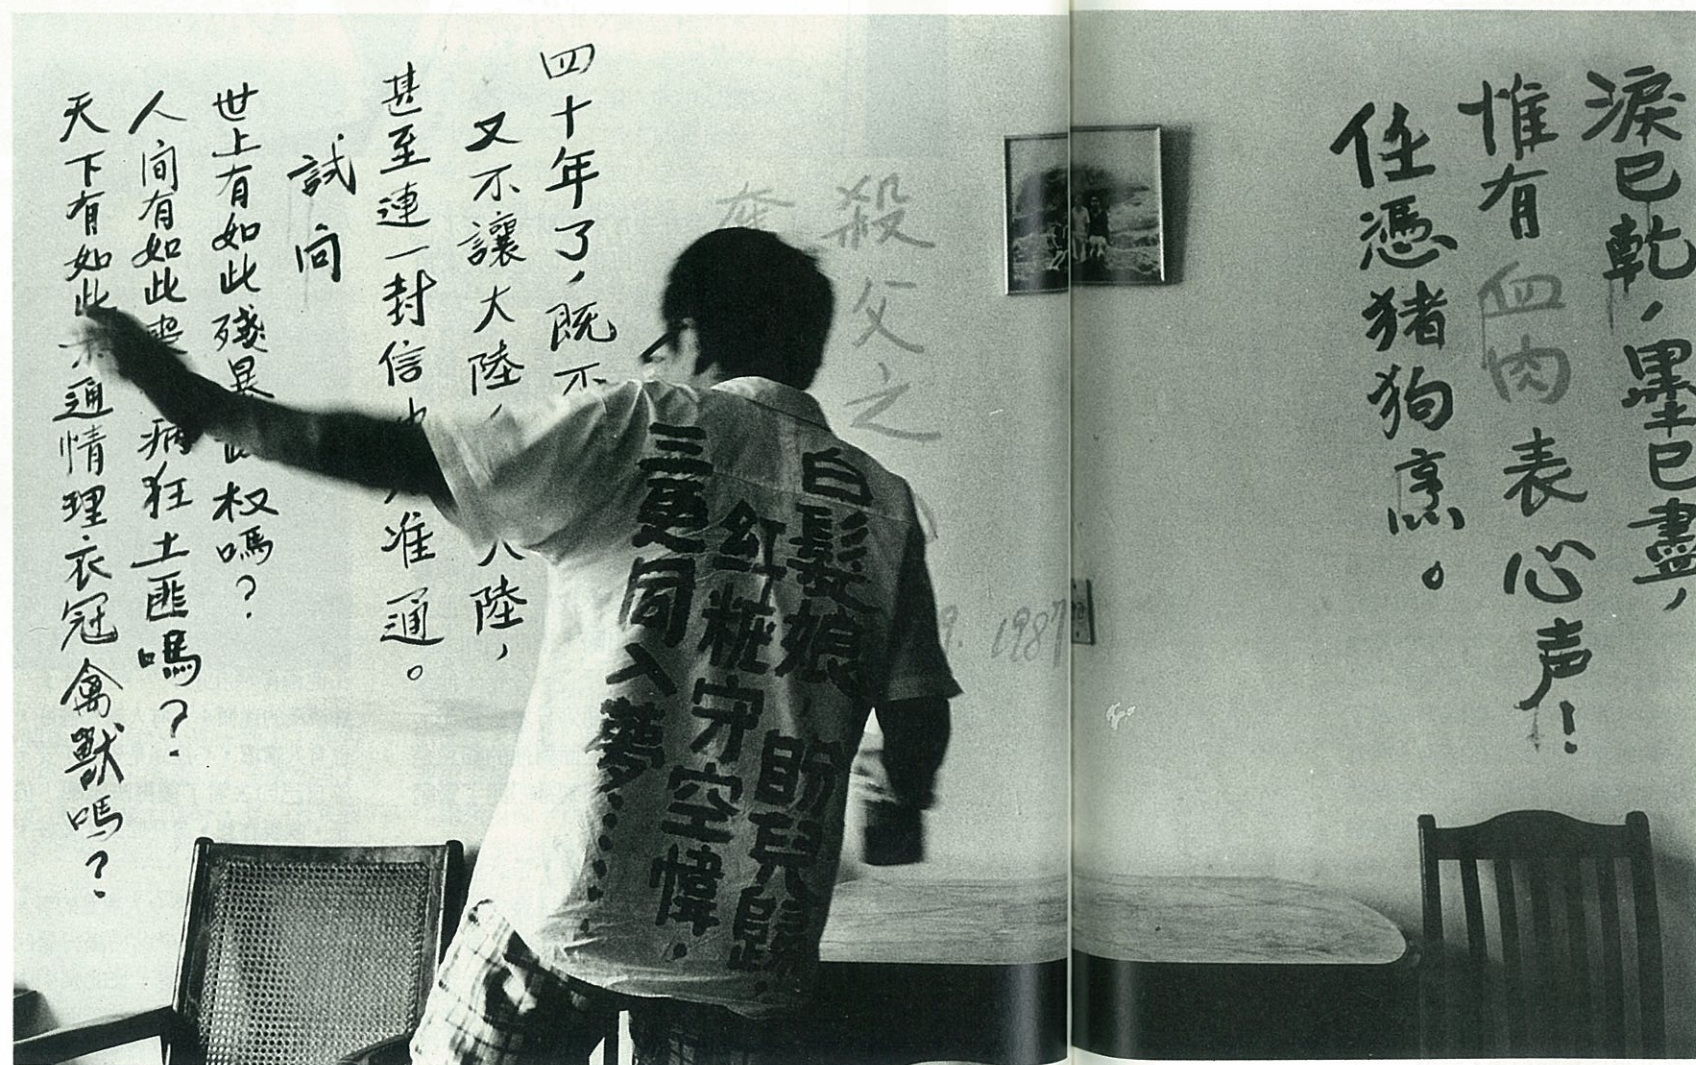 淚已乾，墨已盡，
惟有血肉表心声！
任憑猪狗烹。
殺父之
奪
9. 1987
四十年了，既不
又不讓大陸，大陸，
甚至連一封信也不准通。
試问
世上有如此殘暴 权嗎？
人间有如此喪 病狂土匪嗎？
天下有如此 通情理衣冠禽獸嗎？
白髮娘，盼兒歸，
紅粧守空幃，
三更同入夢……